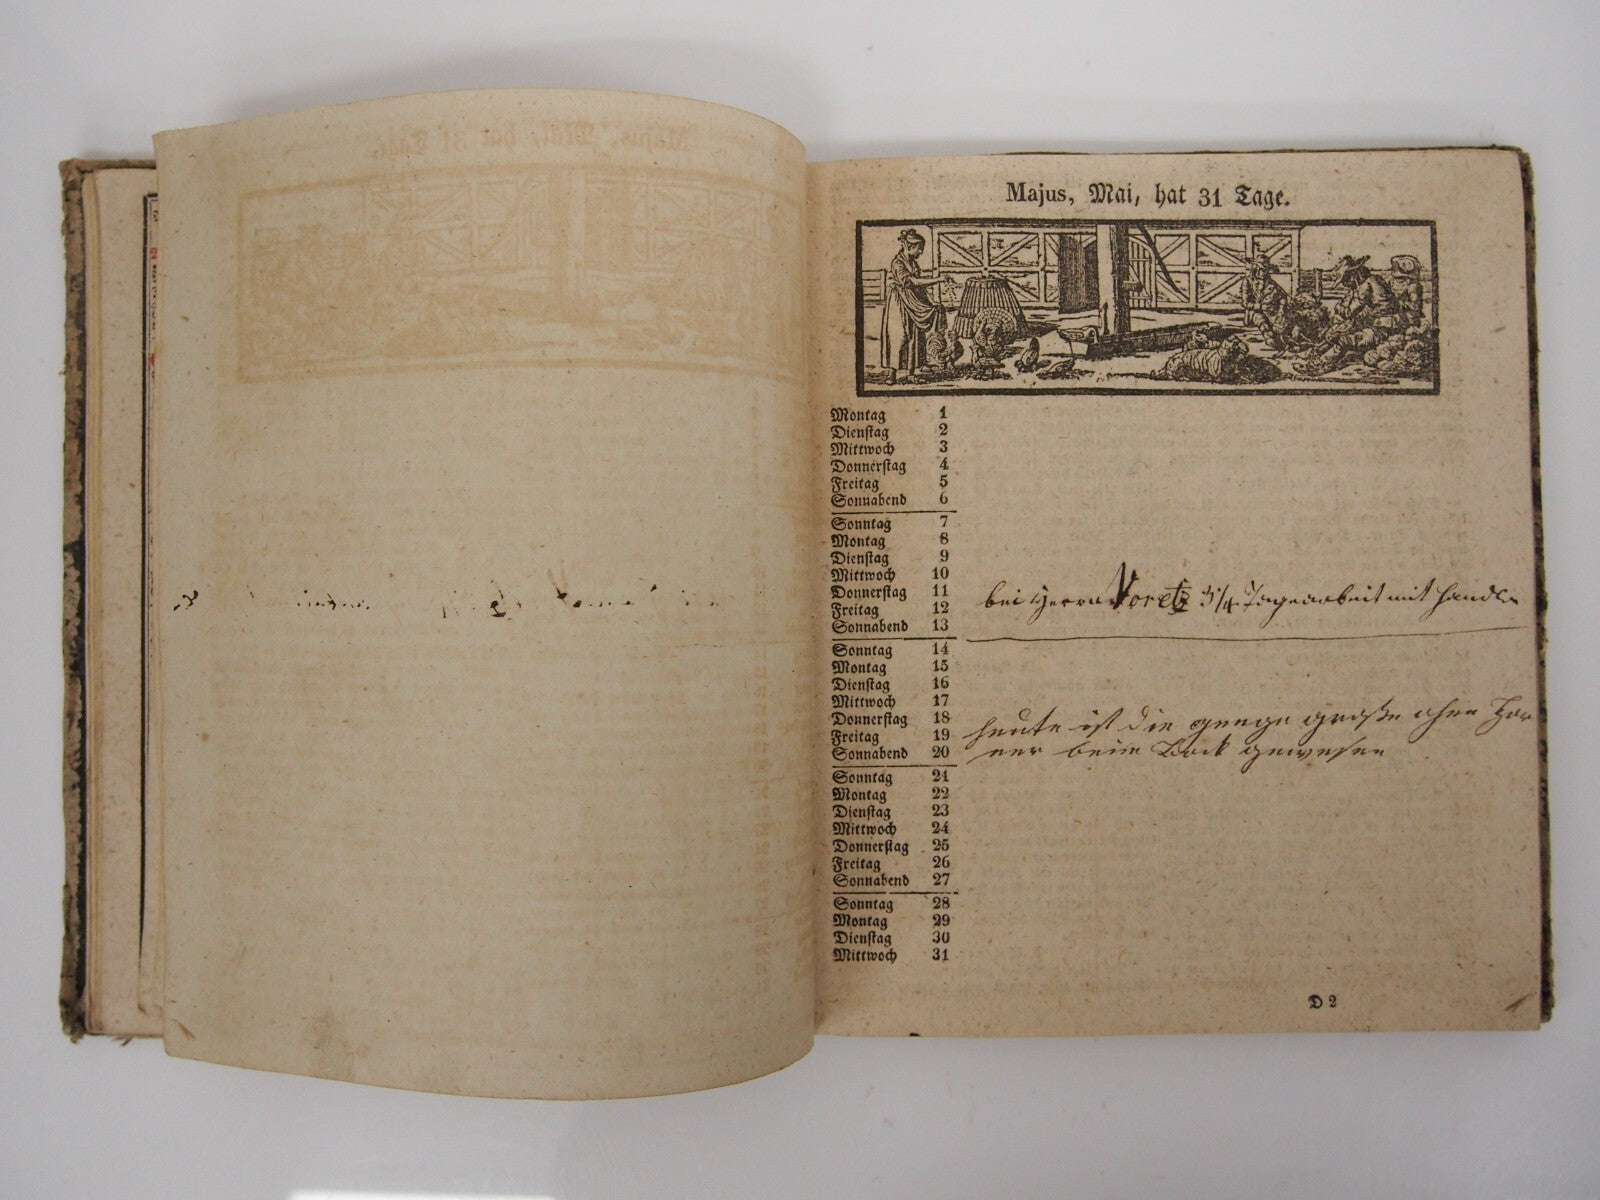 Majus, Mai, hat 31 Tage.
Montag 1
Dienstag 2
Mittwoch 3
Donnerstag 4
Freitag 5
Sonnabend 6
Sonntag 7
Montag 8
Dienstag 9
Mittwoch 10
Donnerstag 11
Freitag 12
Sonnabend 13
bei Herrn Voretz 3/4 Tagearbeit mit
Sonntag 14
Montag 15
Dienstag 16
Mittwoch 17
Donnerstag 18
Freitag 19
Sonnabend 20
heute ist die große ohne Hör
ner beim Bock gewesen
Sonntag 21
Montag 22
Dienstag 23
Mittwoch 24
Donnerstag 25
Freitag 26
Sonnabend 27
Sonntag 28
Montag 29
Dienstag 30
Mittwoch 31
D 2